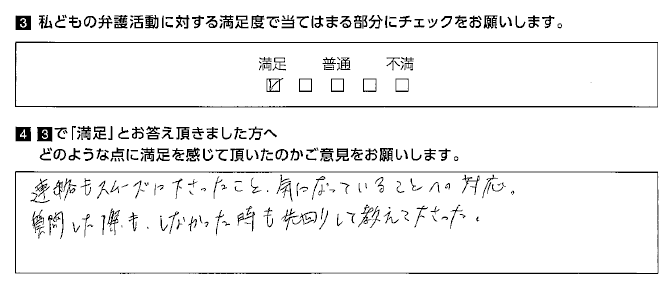 3 私どもの弁護活動に対する満足度で当てはまる部分にチェックをお願いします。
満足 普通 不満
4 3で「満足」とお答え頂きました方へ
どのような点に満足を感じて頂いたのかご意見をお願いします。
連絡もスムーズに下さったこと、気になっていることへの対応。
質問した際も、しなかった時も先回りして教えて下さった。